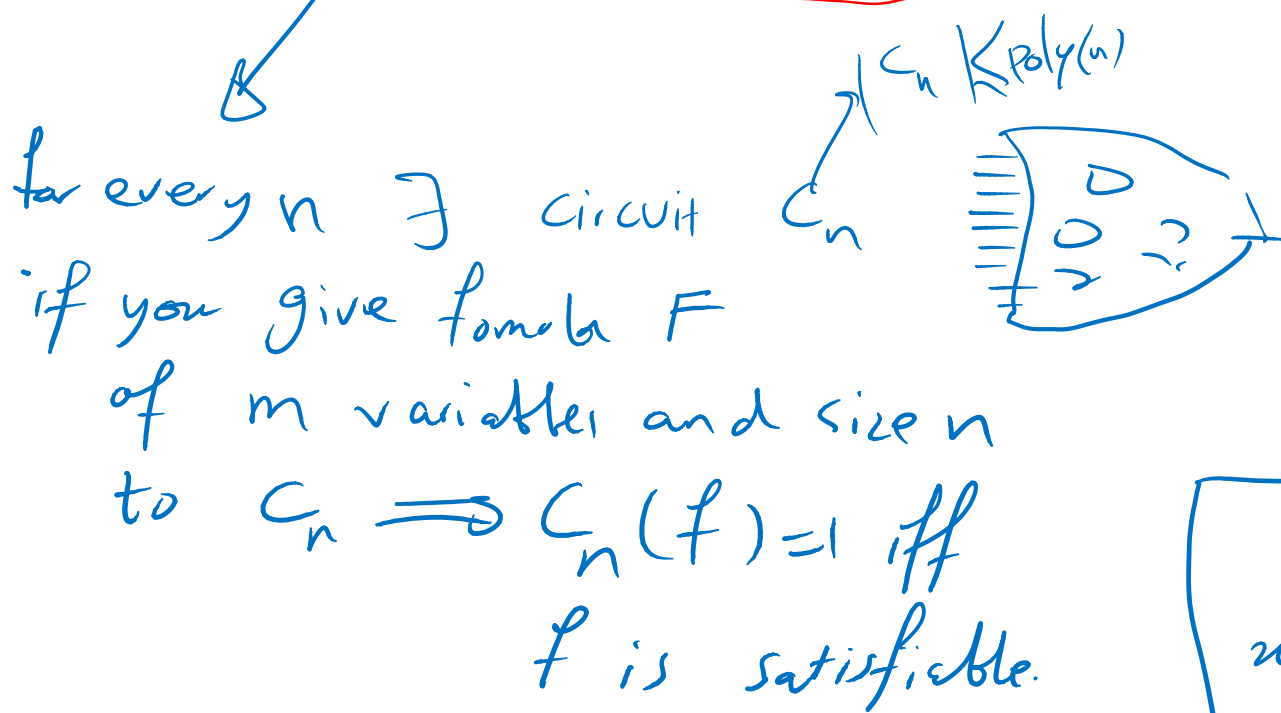 |C_n| < poly(n)
for every n ∃ circuit C_n
if you give fomula F
of m variables and size n
to C_n ⟹ C_n(f)=1 iff
f is satisfiable.